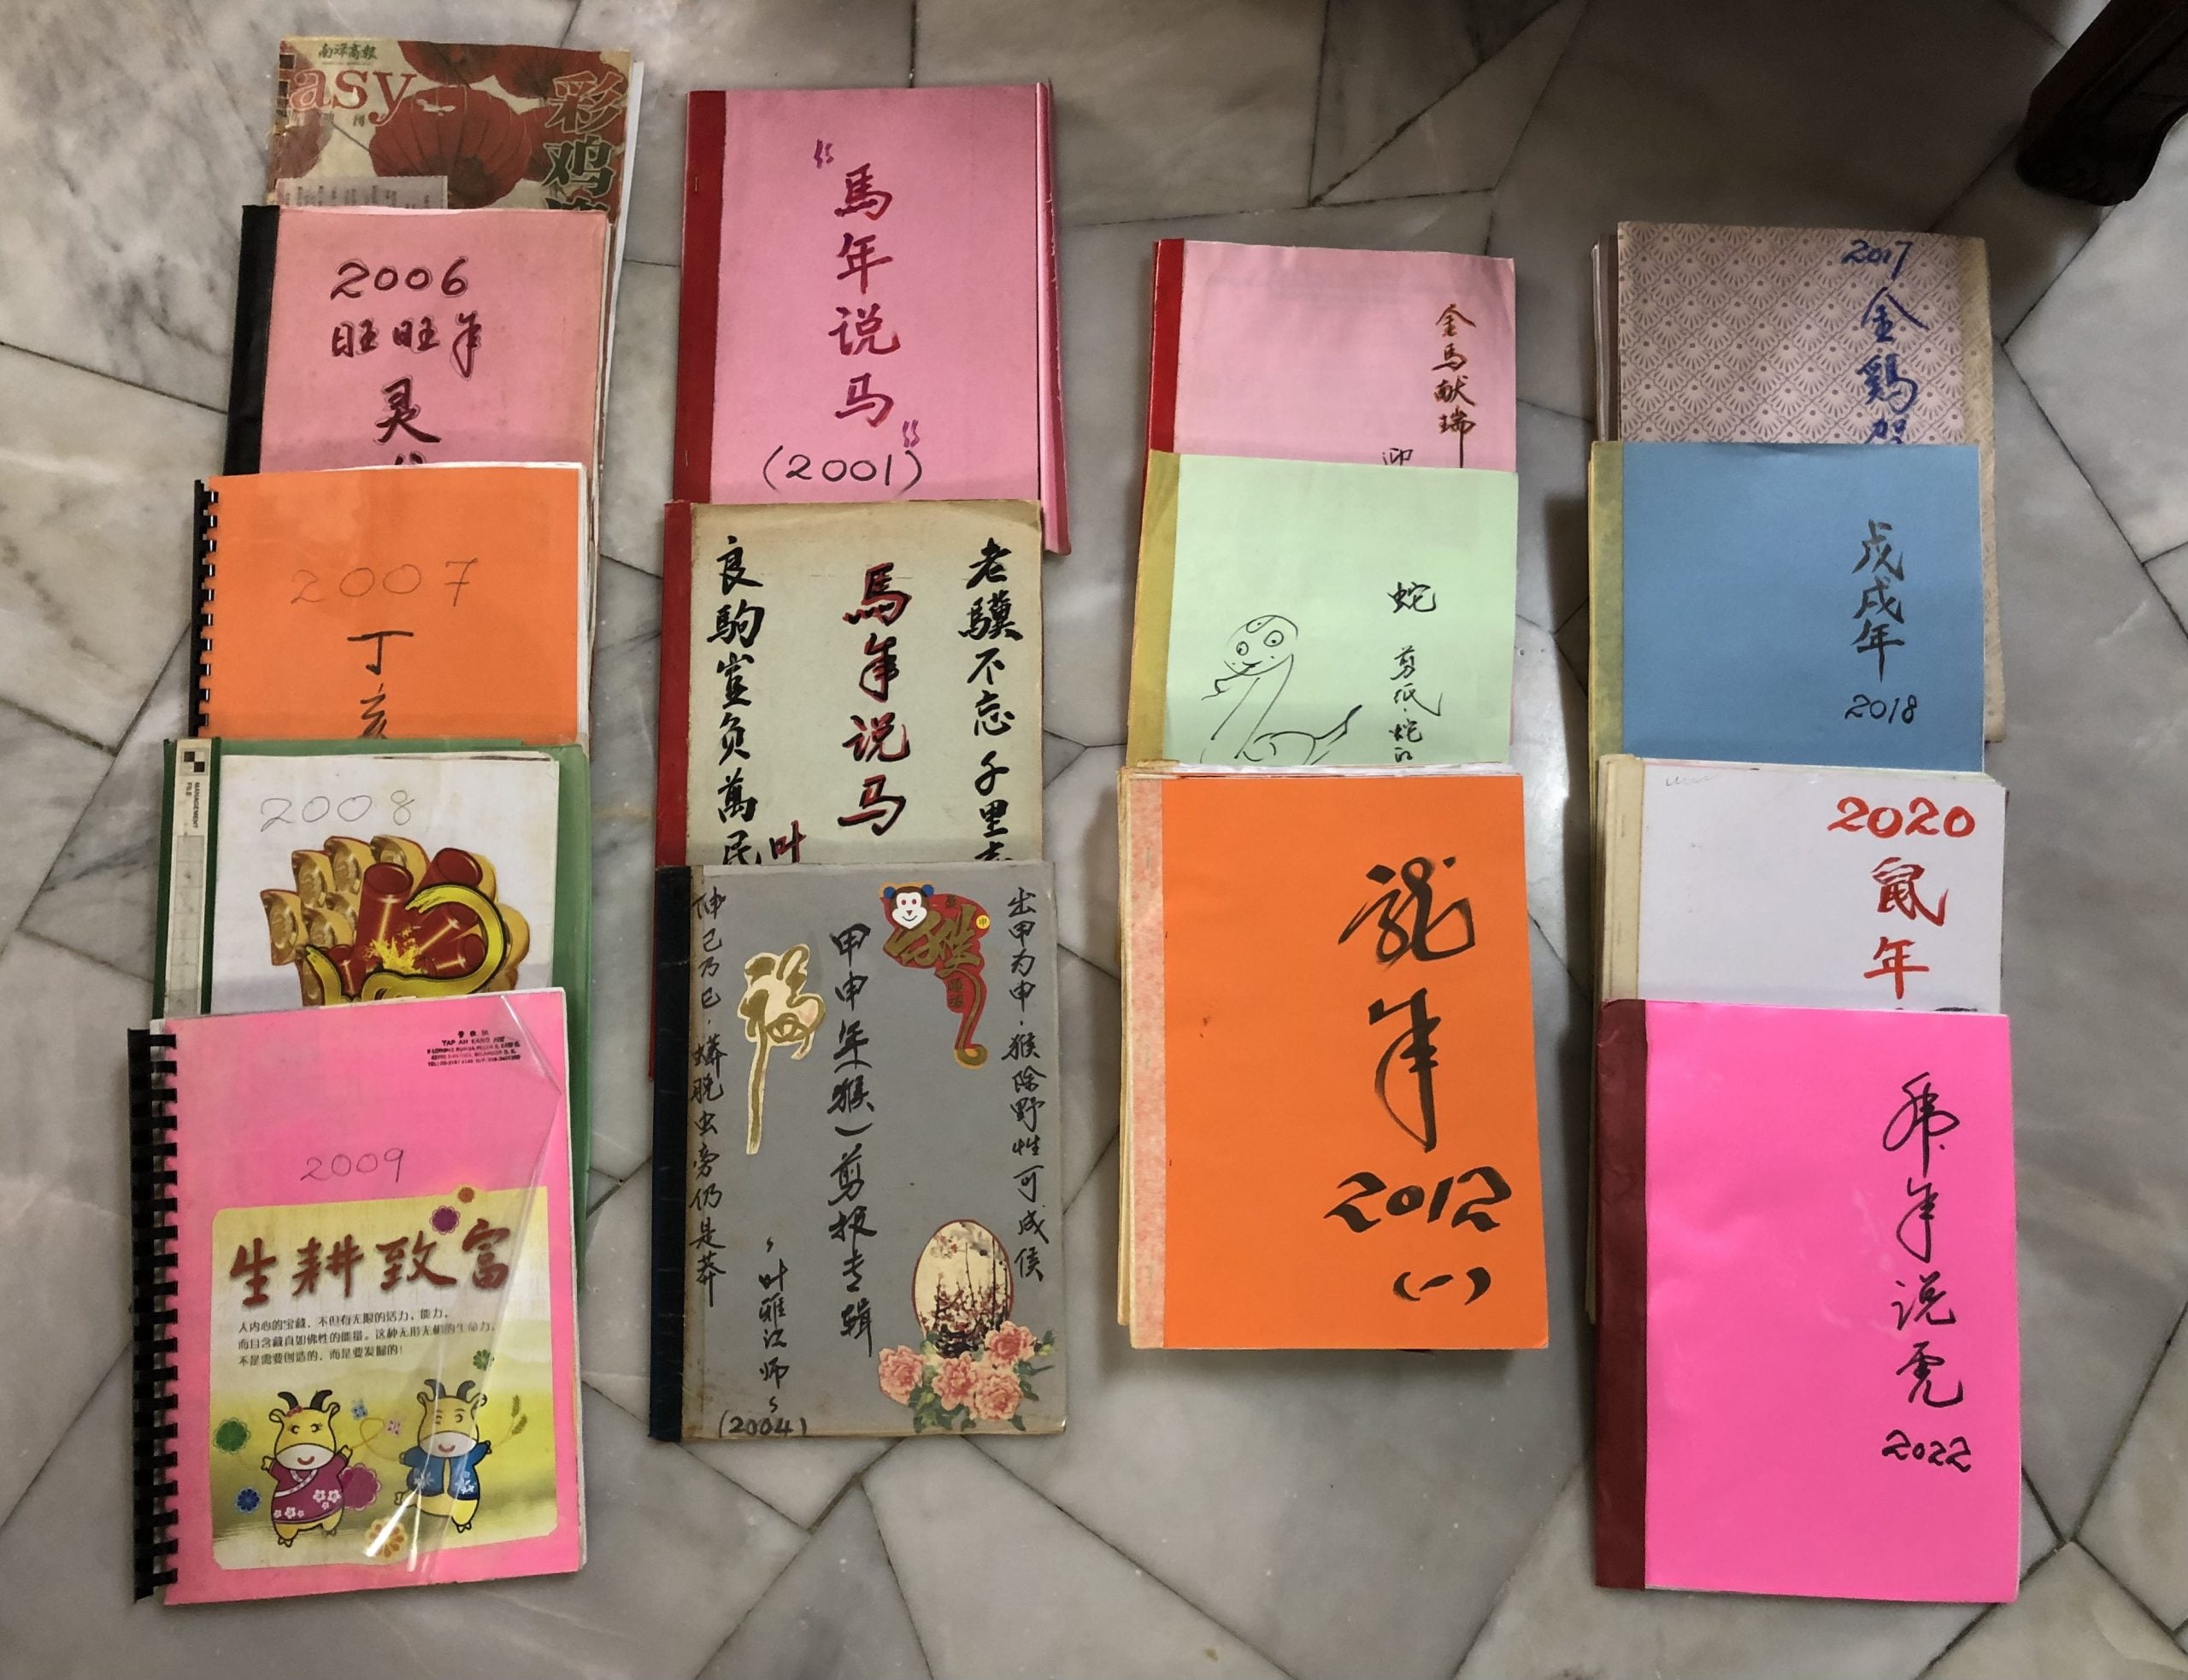 南洋商報
asy
刊
彩鸡
2006
旺旺年
灵
2007
丁
亥
MANAGEMENT
FILE
2008
YAP AH KANG
2009
生耕致富
人内心的宝藏，不但有无限的活力、能力，
而且含藏真如佛性的能量。这种无形无相的生命力，
不是需要创造的，而是要发掘的！
"馬年说马"
(2001)
老驥不忘千里志
馬年说马
良駒岂负萬民
叶
出甲为申，猴除野性可成侯
猴
申
甲申年（猴）剪报专辑
福
叶雅江师
伸己乃已，蟒脱虫旁仍是莽
(2004)
金馬献瑞
蛇
剪纸·蛇
龍年
2012
(一)
2017
金鷄贺
戊戌年
2018
2020
鼠年
虎年说虎
2022